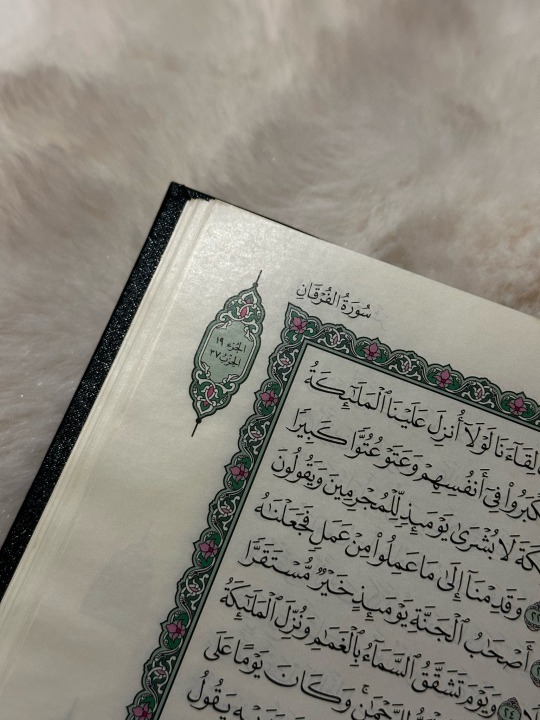 سُورَةُ الفُرْقَانِ
الجزء ١٩
الحزب ٣٧
لِقَآءَنَا لَوْلَآ أُنزِلَ عَلَيْنَا ٱلْمَلَٰٓئِكَةُ
فِىٓ أَنفُسِهِمْ وَعَتَوْ عُتُوًّا كَبِيرًا
لَا بُشْرَىٰ يَوْمَئِذٍ لِّلْمُجْرِمِينَ وَيَقُولُونَ
وَقَدِمْنَآ إِلَىٰ مَا عَمِلُوا۟ مِنْ عَمَلٍ فَجَعَلْنَٰهُ
أَصْحَٰبُ ٱلْجَنَّةِ يَوْمَئِذٍ خَيْرٌ مُّسْتَقَرًّا
وَيَوْمَ تَشَقَّقُ ٱلسَّمَآءُ بِٱلْغَمَٰمِ وَنُزِّلَ ٱلْمَلَٰٓئِكَةُ
وَكَانَ يَوْمًا عَلَى
يَقُولُ